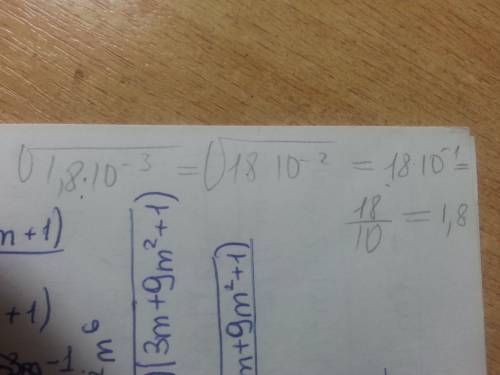 √1,8·10⁻³ = √18 10⁻² = 18·10⁻¹ =
18/10 = 1,8
m+1)
+1)
)(3m+9m²+1)
m+9m²+1)
m⁶